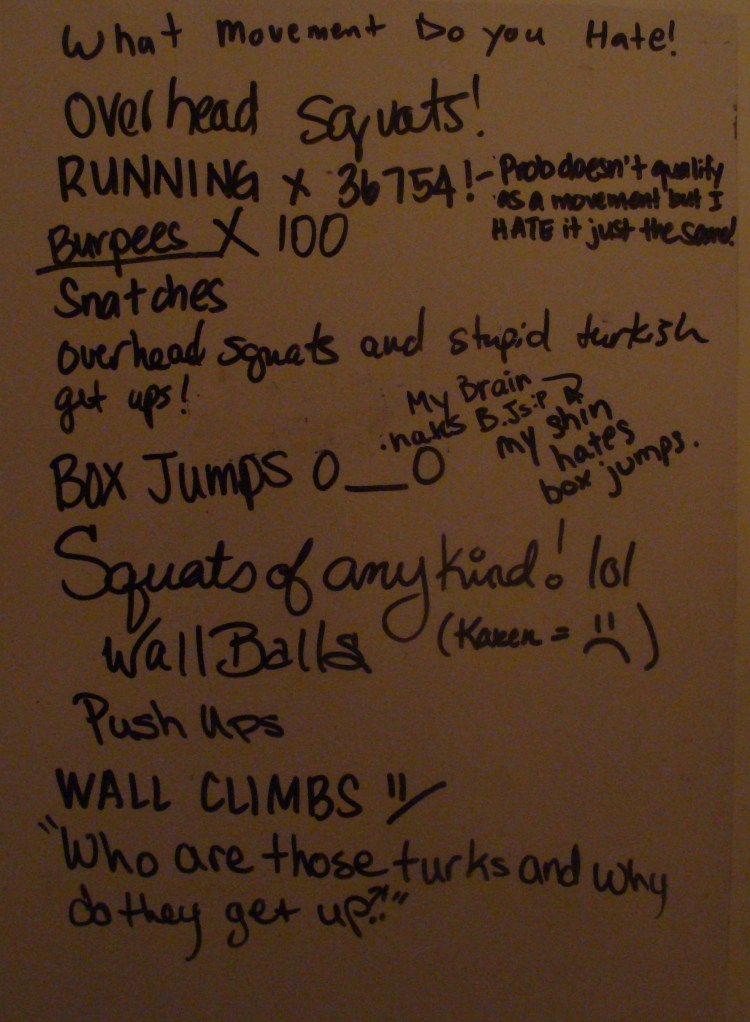 What Movement Do you Hate!
Overhead Squats!
RUNNING x 36754!- Prob doesn't qualify
as a movement but I
HATE it just the same!
Burpees X 100
Snatches
overhead squats and stupid turkish
get ups!
My Brain
hates B.Js :P
my shin
hates
box jumps.
BOX JUMPS O__O
Squats of any kind! lol
Wall Balls (Karen = )
Push Ups
WALL CLIMBS
"Who are those turks and why
do they get up?!"